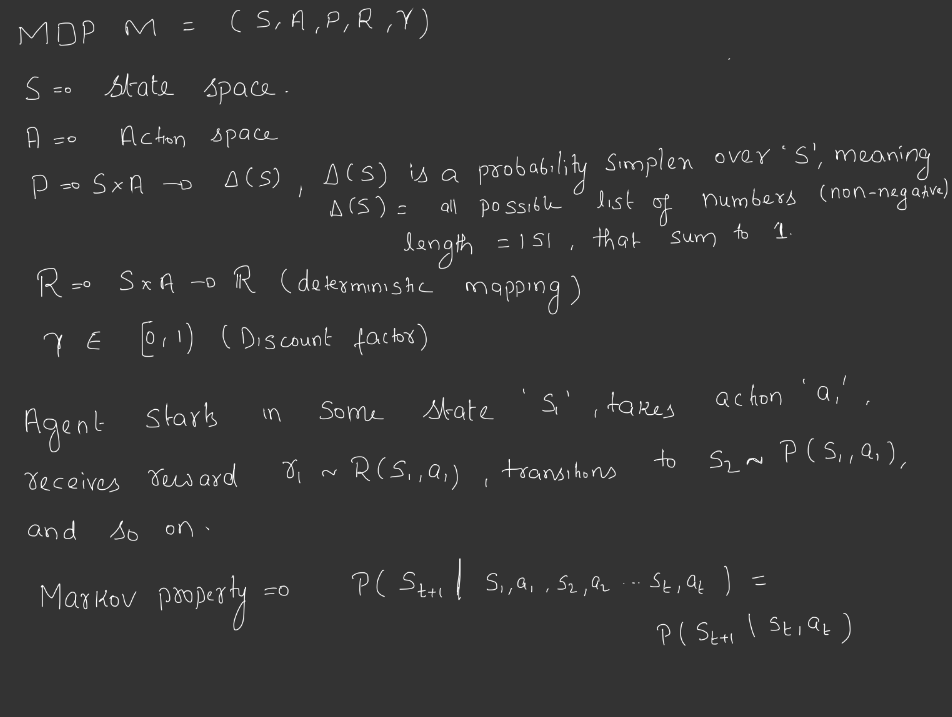 MDP M = (S, A, P, R, γ)
S => State space.
A => Action space
P => S×A → Δ(S), Δ(S) is a probability simplex over 'S', meaning
Δ(S) = all possible list of numbers (non-negative)
length = |S|, that sum to 1.
R => S×A → ℝ (deterministic mapping)
γ ∈ [0,1) (Discount factor)
Agent starts in some state 'S₁', takes action 'a₁',
receives reward r₁ ~ R(S₁,a₁), transitions to S₂ ~ P(S₁,a₁),
and so on.
Markov property => P(S_{t+1} | S₁,a₁,S₂,a₂ ... S_t,a_t) =
P(S_{t+1} | S_t,a_t)